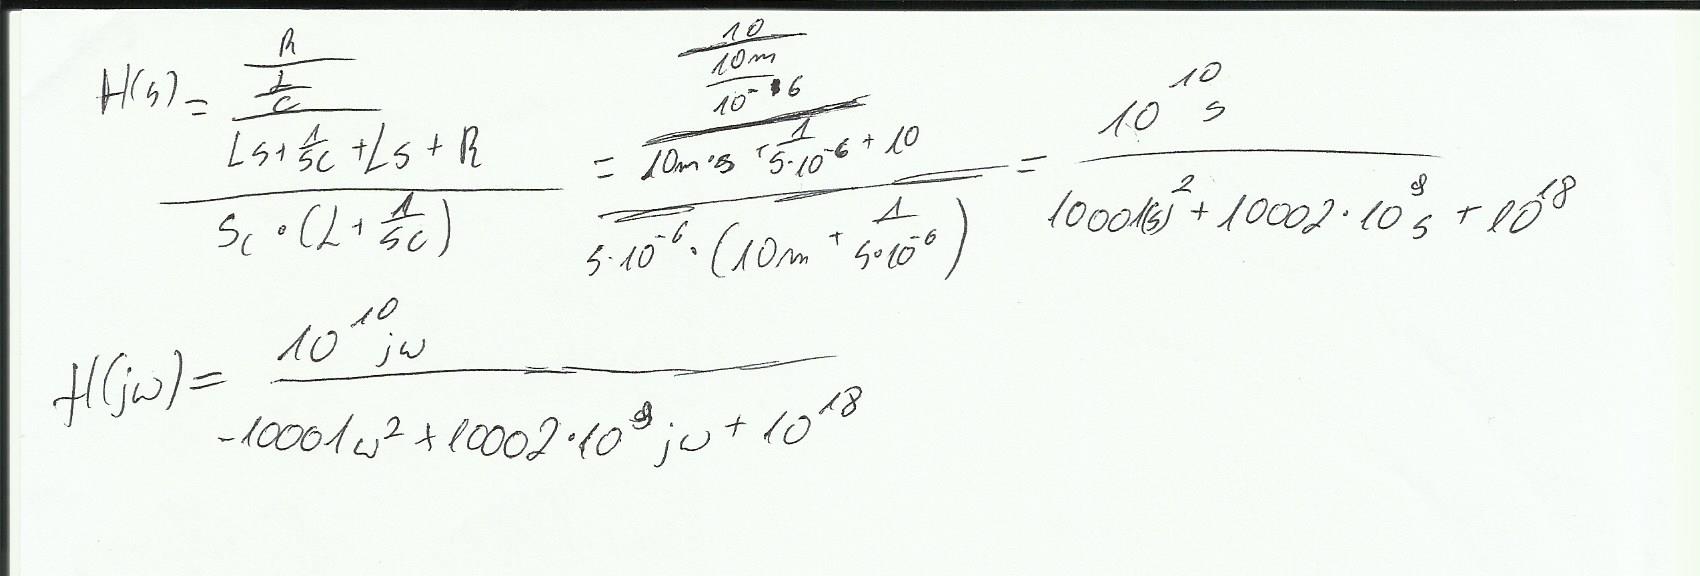 H(s) = \frac{\frac{\frac{R}{\frac{L}{C}}}{Ls + \frac{1}{sC} + Ls + R}}{sC \cdot (L + \frac{1}{sC})} = \frac{\frac{\frac{10}{\frac{10m}{10^{-6}}}}{10m \cdot s + \frac{1}{s \cdot 10^{-6}} + 10}}{s \cdot 10^{-6} \cdot (10m + \frac{1}{s \cdot 10^{-6}})} = \frac{10^{10} s}{10001(s)^2 + 10002 \cdot 10^{8} s + 10^{18}}
H(j\omega) = \frac{10^{10} j\omega}{-10001\omega^2 + 10002 \cdot 10^{8} j\omega + 10^{18}}